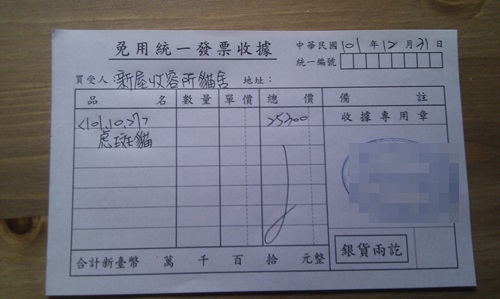 免用統一發票收據
中華民國101年12月31日
統一編號
買受人 新屋收容所貓舍 地址:
品名 數量 單價 總價 備註
<101.10.27> 25300 收據專用章
虎斑貓
銀貨兩訖
合計新臺幣 萬 千 百 拾 元整